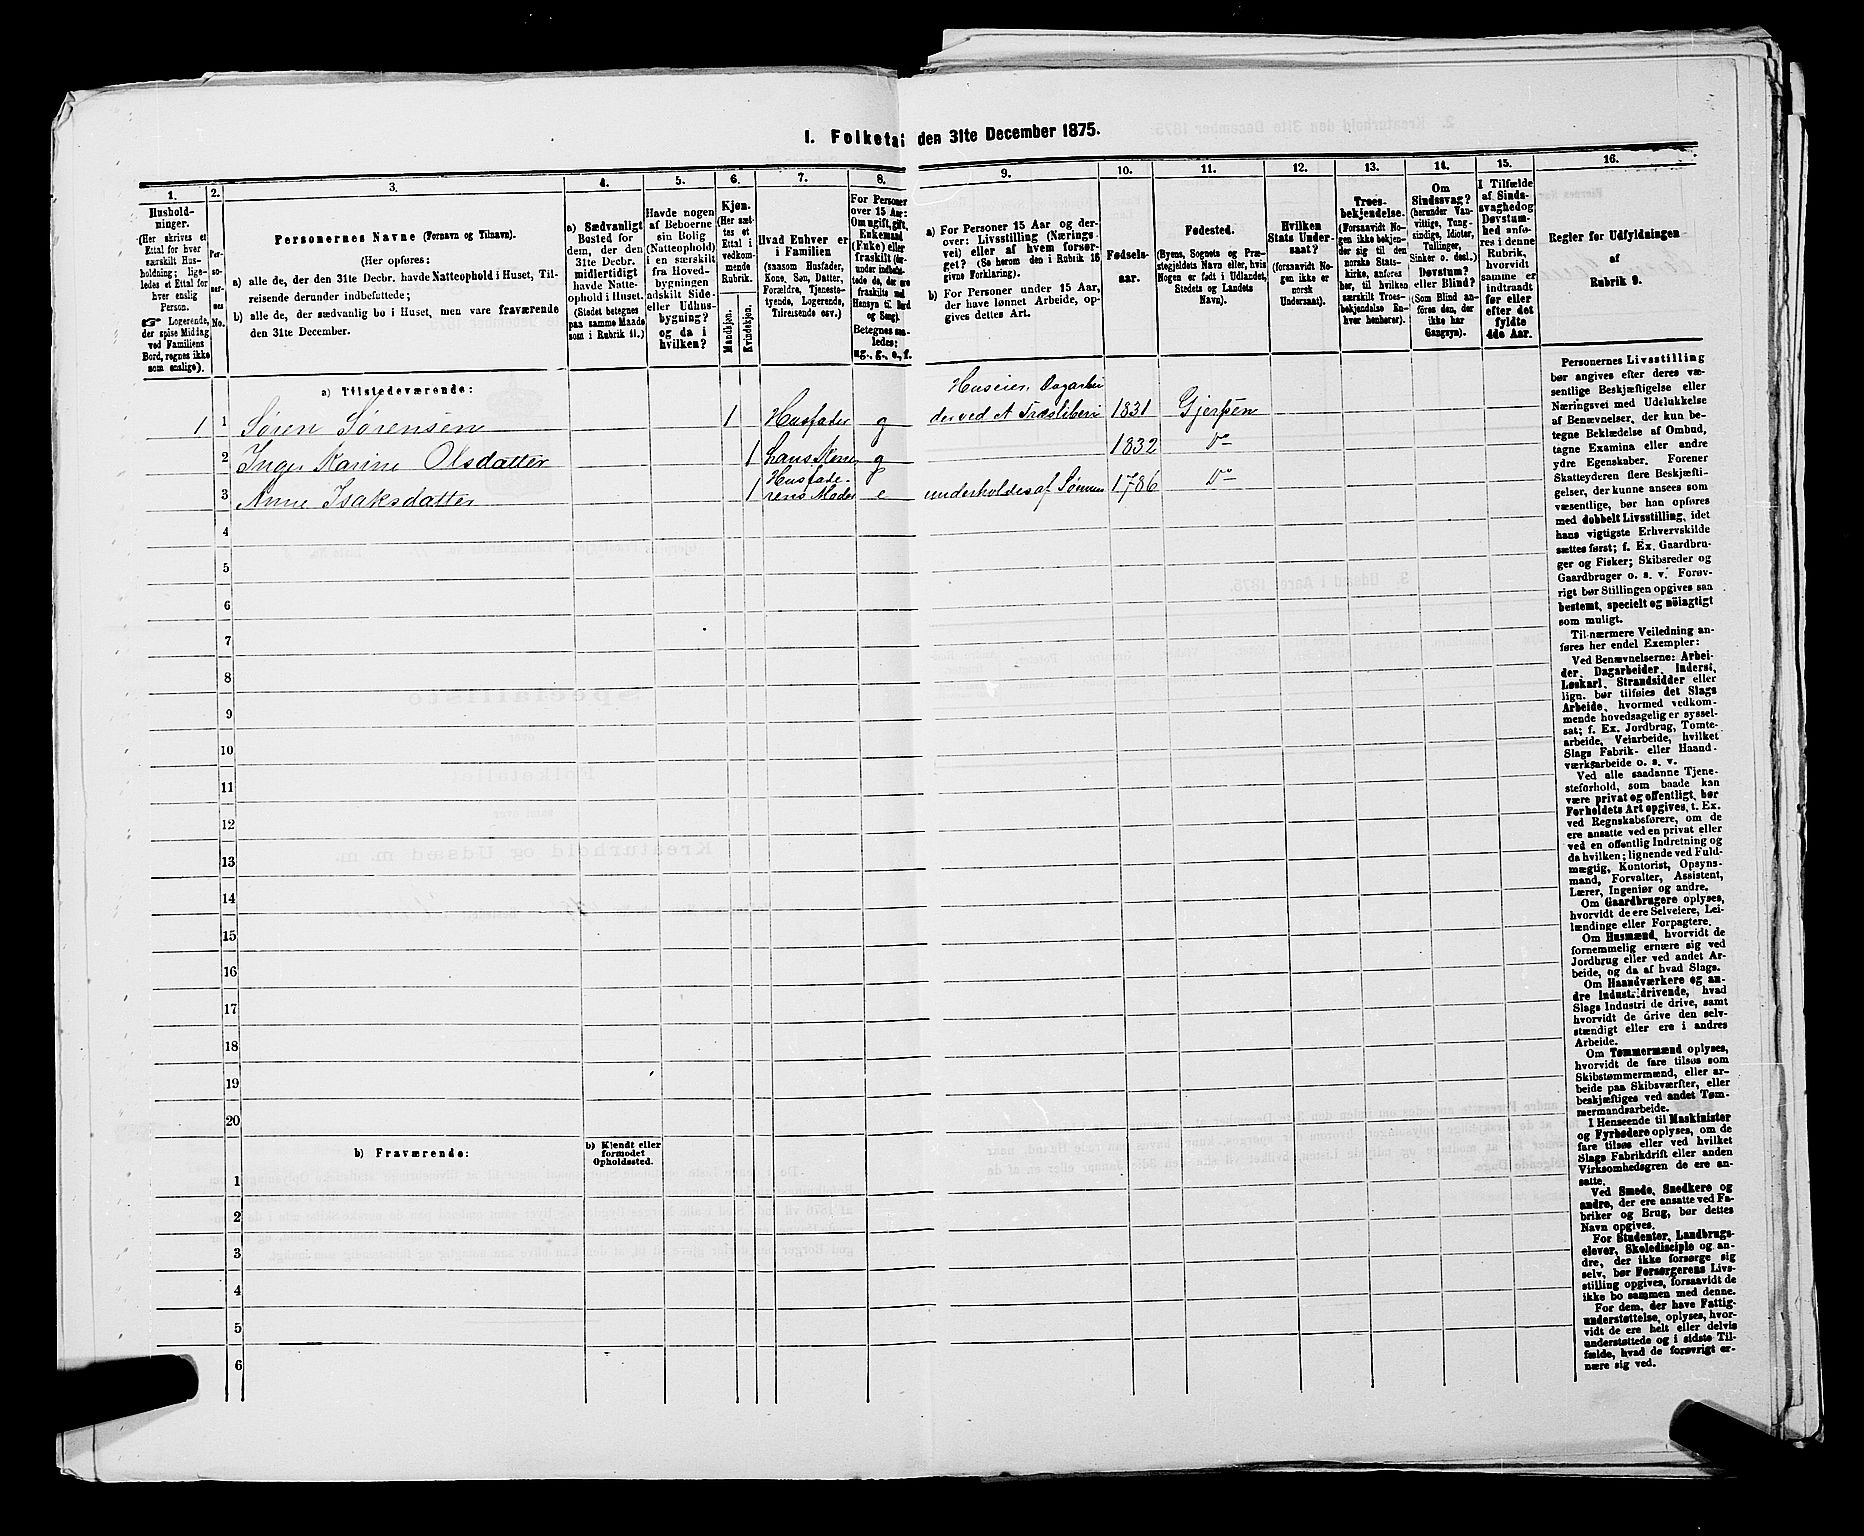 I. Folketal den 31te December 1875.
1.
Hushold-
ninger.
(Her skrives et
Ettal for hver
særskilt Hus-
holdning; lige-
ledes et Ettal for
hver enslig
Person.
Logerende,
der spise Middag
ved Familiens
Bord, regnes ikke
som enslige).
2.
Per-
so-
ner-
nes
No.
3.
Personernes Navne (Fornavn og Tilnavn).
(Her opføres:
a) alle de, der den 31te Decbr. havde Natteophold i Huset, Til-
reisende derunder indbefattede;
b) alle de, der sædvanlig bo i Huset, men vare fraværende
den 31te December.
4.
a) Sædvanligt
Bosted for
dem, der den
31te Decbr.
midlertidigt
havde Natte-
ophold i Huset.
(Stedet betegnes
paa samme Maade
som i Rubrik 11.)
5.
Havde nogen
af Beboerne
sin Bolig
(Natteophold)
i en særskilt
fra Hoved-
bygningen
adskilt Side-
eller Udhus-
bygning?
og da i
hvilken?
6.
Kjøn.
(Her sæt-
tes et
Ettal i
vedkom-
mende
Rubrik.
Mandkjøn.
Kvindekjøn.
7.
Hvad Enhver er
i Familien
(saasom Husfader,
Kone, Søn, Datter,
Forældre, Tjeneste-
tyende, Logerende,
Tilreisende osv.)
8.
For Personer
over 15 Aar:
Om ugift, gift,
Enkemand
(Enke) eller
fraskilt (her-
under indbefat-
tede de, der ere
fraskilte med
Hensyn til Bord
og Seng).
Betegnes saa-
ledes:
ug., g., e., f.
9.
a) For Personer 15 Aar og der-
over: Livsstilling (Nærings-
vei) eller af hvem forsør-
get? (Se herom den i Rubrik 16
givne Forklaring).
b) For Personer under 15 Aar,
der have lønnet Arbeide, op-
gives dettes Art.
10.
Fødsels-
aar.
11.
Fødested.
(Byens, Sognets og Præ-
stegjeldets Navn eller, hvis
Nogen er født i Udlandet,
Stedets og Landets
Navn).
12.
Hvilken
Stats Under-
saat?
(forsaavidt No-
gen ikke er
norsk
Undersaat).
13.
Troes-
bekjendelse.
(Forsaavidt No-
gen ikke bekjen-
der sig til den
norske Stats-
kirke, anføres
her, til hvilken
særskilt Troes-
bekjendelse En-
hver henhører).
14.
Om
Sindssvag?
(herunder Van-
vittige, Tung-
sindige, Idioter,
Tullinger,
Sinker o. desl.)
Døvstum?
eller Blind?
(Som Blind an-
føres den, der
ikke har
Gangsyn).
15.
I Tilfælde
af Sinds-
svaghed og
Døvstum-
hed anfø-
res i denne
Rubrik,
hvorvidt
samme er
indtraadt
før eller
efter det
fyldte
4de Aar.
16.
Regler for Udfyldningen
af
Rubrik 9.
a) Tilstedeværende:
Huseier, Dagarbei
1 1 Søren Sørensen 1 Husfader g der ved A Træsliberi 1831 Gjerpen
2 Inger Karine Olsdatter 1 hans Kone g 1832 Do
3 Anne Isaksdatter 1 Husfade-
rens Moder e underholdes af Sønnen 1786 Do
4
5
6
7
8
9
10
11
12
13
14
15
16
17
18
19
20
b) Fraværende:
b) Kjendt eller
formodet
Opholdssted.
1
2
3
4
5
6
Personernes Livsstilling
bør angives efter deres væ-
sentlige Beskjæftigelse eller
Næringsvei med Udelukkelse
af Benævnelser, der kun be-
tegne Beklædelse af Ombud,
tagne Examina eller andre
ydre Egenskaber. Forener
Skatteyderen flere Beskjæfti-
gelser, der kunne ansees som
væsentlige, bør han opføres
med dobbelt Livsstilling, idet
hans vigtigste Erhvervskilde
sættes først; f. Ex. Gaardbru-
ger og Fisker; Skibsreder og
Gaardbruger o. s. v. Forøv-
rigt bør Stillingen opgives saa
bestemt, specielt og nöiagtigt
som muligt.
Til nærmere Veiledning an-
føres her endel Exempler:
Ved Benævnelserne: Arbei-
der, Dagarbeider, Inderst,
Løskarl, Strandsidder eller
lign. bør tilføies det Slags
Arbeide, hvormed vedkom-
mende hovedsagelig er syssel-
sat; f. Ex. Jordbrug, Tomte-
arbeide, Veiarbeide, hvilket
Slags Fabrik- eller Haand-
værksarbeide o. s. v.
Ved alle saadanne Tjene-
steforhold, som baade kan
være privat og offentligt, bør
Forholdets Art opgives, t. Ex.
ved Regnskabsførere, om de
ere ansatte ved en privat eller
ved en offentlig Indretning og
da hvilken; lignende ved Fuld-
mægtig, Kontorist, Opsyns-
mand, Forvalter, Assistent,
Lærer, Ingeniør og andre.
Om Gaardbrugere oplyses,
hvorvidt de ere Selveiere, Lei-
lændinge eller Forpagtere.
Om Husmænd, hvorvidt de
fornemmelig ernære sig ved
Jordbrug eller ved andet Ar-
beide, og da af hvad Slags.
Om Haandværkere og an-
dre Industridrivende, hvad
Slags Industri de drive, samt
hvorvidt de drive den selv-
stændigt eller ere i andres
Arbeide.
Om Tømmermænd oplyses,
hvorvidt de fare tilsøs som
Skibstømmermænd, eller ar-
beide paa Skibsværfter, eller
beskjæftiges ved andet Tøm-
mermandsarbeide.
I Henseende til Maskinister
og Fyrbødere oplyses, om de
fare tilsøs eller ved hvilket
Slags Fabrikdrift eller anden
Virksomhedsgren de ere an-
satte.
Ved Smede, Snedkere og
andre, der ere ansatte ved Fa-
briker og Brug, bør dettes
Navn opgives.
For Studenter, Landbrugs-
elever, Skoledisciple og an-
dre, der ikke forsørge sig
selv, bør Forsørgerens Livs-
stilling opgives, forsaavidt de
ikke bo sammen med denne.
For dem, der have Fattig-
understøttelse, oplyses, hvor-
vidt de ere helt eller delvis
understøttede og i sidste Til-
fælde, hvad de forøvrigt er-
nære sig ved.